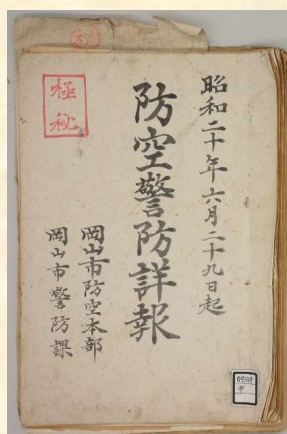 昭和二十年六月二十九日起
防空警防詳報
岡山市防空本部
岡山市警防課
極秘